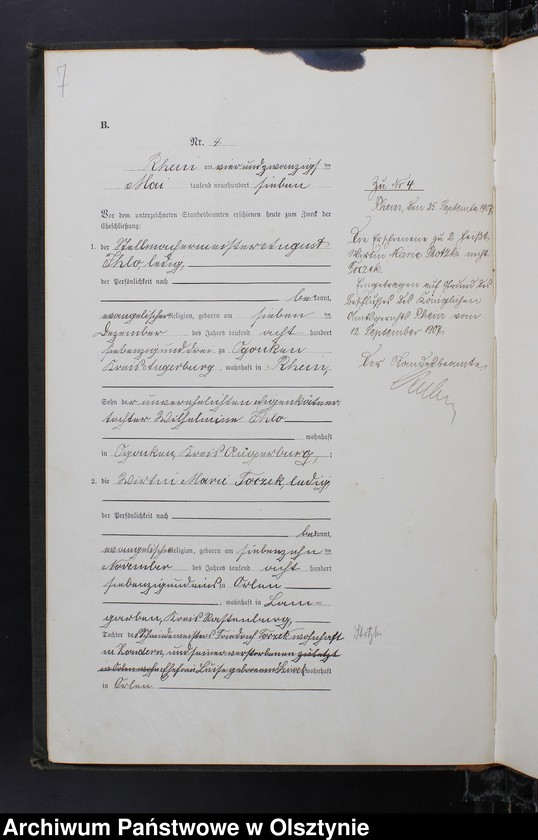 7
B.
Nr. 4.
Rhein am vierundzwanzigsten
Mai tausend neunhundert sieben
Vor dem unterzeichneten Standesbeamten erschienen heute zum Zweck der
Eheschließung:
1. der Stellmachermeister August
Ihlo, ledig,
der Persönlichkeit nach
bekannt,
evangelischer Religion, geboren am sieben ten
Dezember des Jahres tausend acht hundert
siebenzigunddrei zu Ogonken
Kreis Angerburg, wohnhaft in Rhein,
Sohn der unverehelichten Eigenkätner-
tochter Wilhelmine Ihlo
wohnhaft
in Ogonken, Kreis Angerburg, ;
2. die Wirtin Marie Torzek, ledig,
der Persönlichkeit nach
bekannt,
evangelischer Religion, geboren am siebenzehn ten
November des Jahres tausend acht hundert
siebenzigundeins zu Orlen
, wohnhaft in Lam-
garben, Kreis Rastenburg,
Tochter des Schmiedemeisters Friedrich Torzek wohnhaft
in und seiner verstorbenen zuletzt
in Orlen Ehefrau Luise geborenen wohnhaft
in Orlen
Zu Nr 4
Rhein, den 25 September 1907.
Die Erschienene zu 2 heißt
Wirtin Marie nicht
Torzek.
Eingetragen auf Grund des
Beschlusses des Königlichen
Amtsgerichts Rhein vom
12 September 1907.
Der Standesbeamte
Archiwum Państwowe w Olsztynie